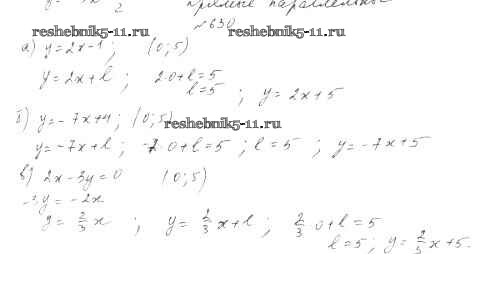 2 прямые параллельные
№ 630
reshebnik5-11.ru reshebnik5-11.ru
а) y = 2x - 1 ; (0; 5)
y = 2x + l ; 2·0 + l = 5
l = 5 ; y = 2x + 5
б) y = - 7x + 4 ; (0; 5)
reshebnik5-11.ru
y = -7x + l ; -7·0 + l = 5 ; l = 5 ; y = -7x + 5
в) 2x - 3y = 0 (0; 5)
-3y = -2x
y = 2/3 x ; y = 2/3 x + l ; 2/3·0 + l = 5
l = 5 ; y = 2/3 x + 5.